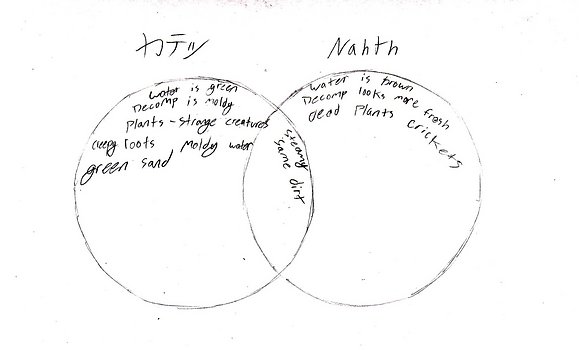 カテッ
Nahth
water is green
Decomp is moldy
Plants - strange creatures
creepy roots moldy water
green sand
steamy
same dirt
water is brown
Decomp looks more fresh
dead Plants crickets